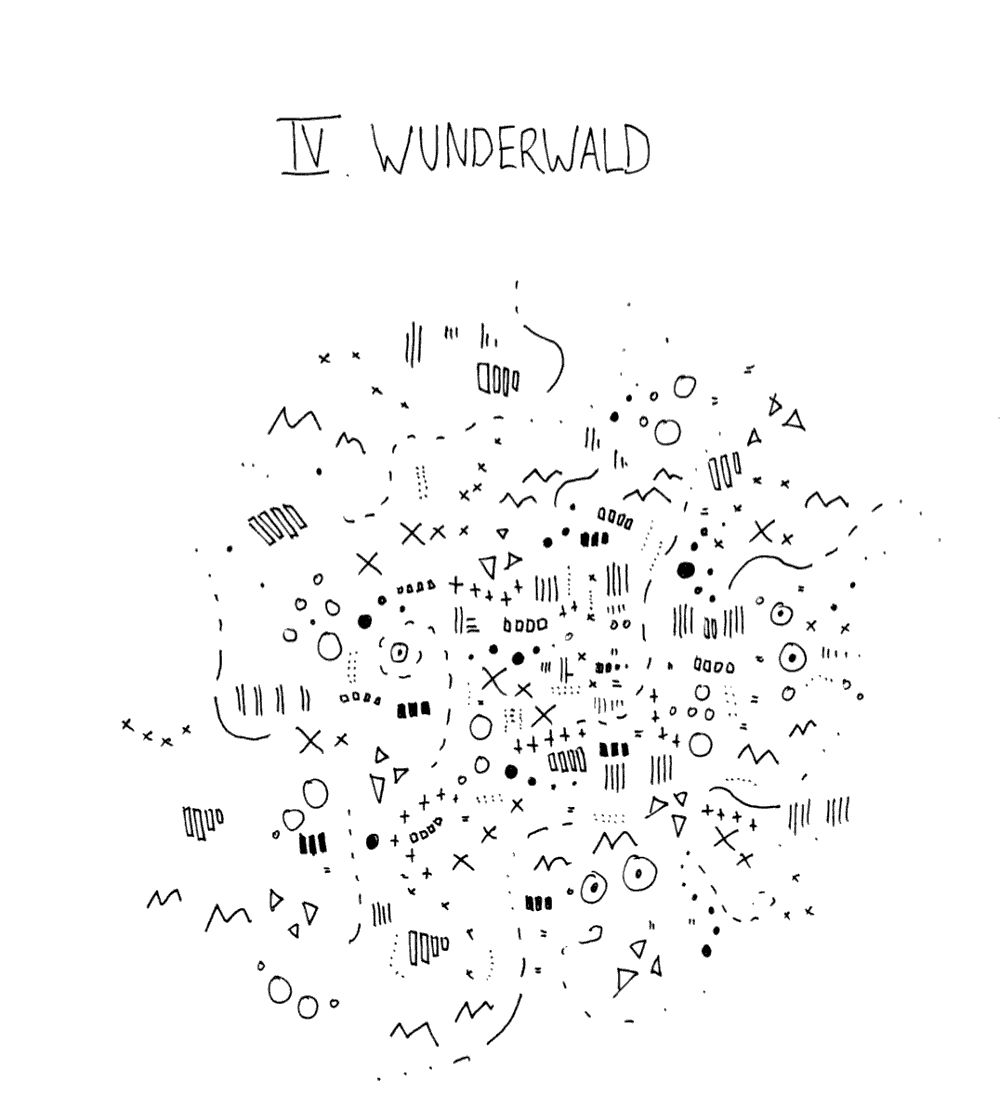 IV. WUNDERWALD